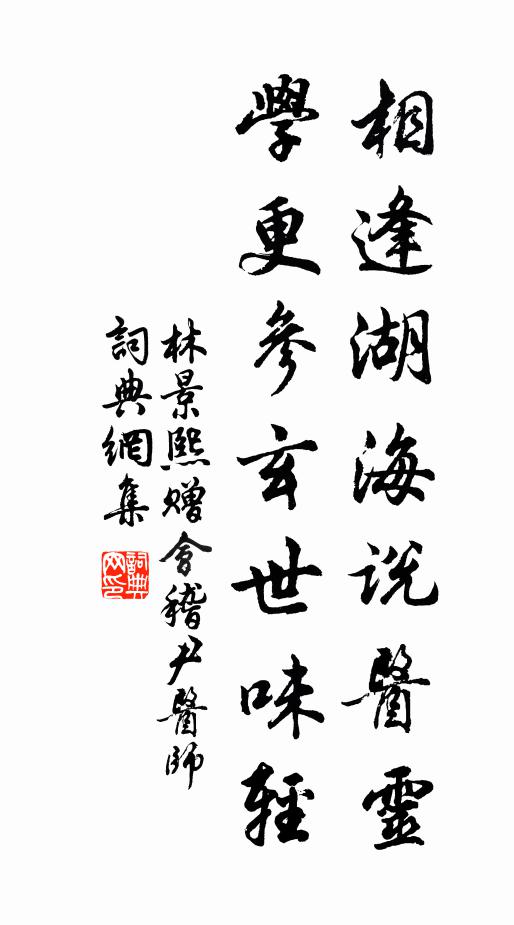 相逢湖海說醫靈
學更參玄世味輕
林景熙贈會稽尹醫師
詞典網集
詞典網印